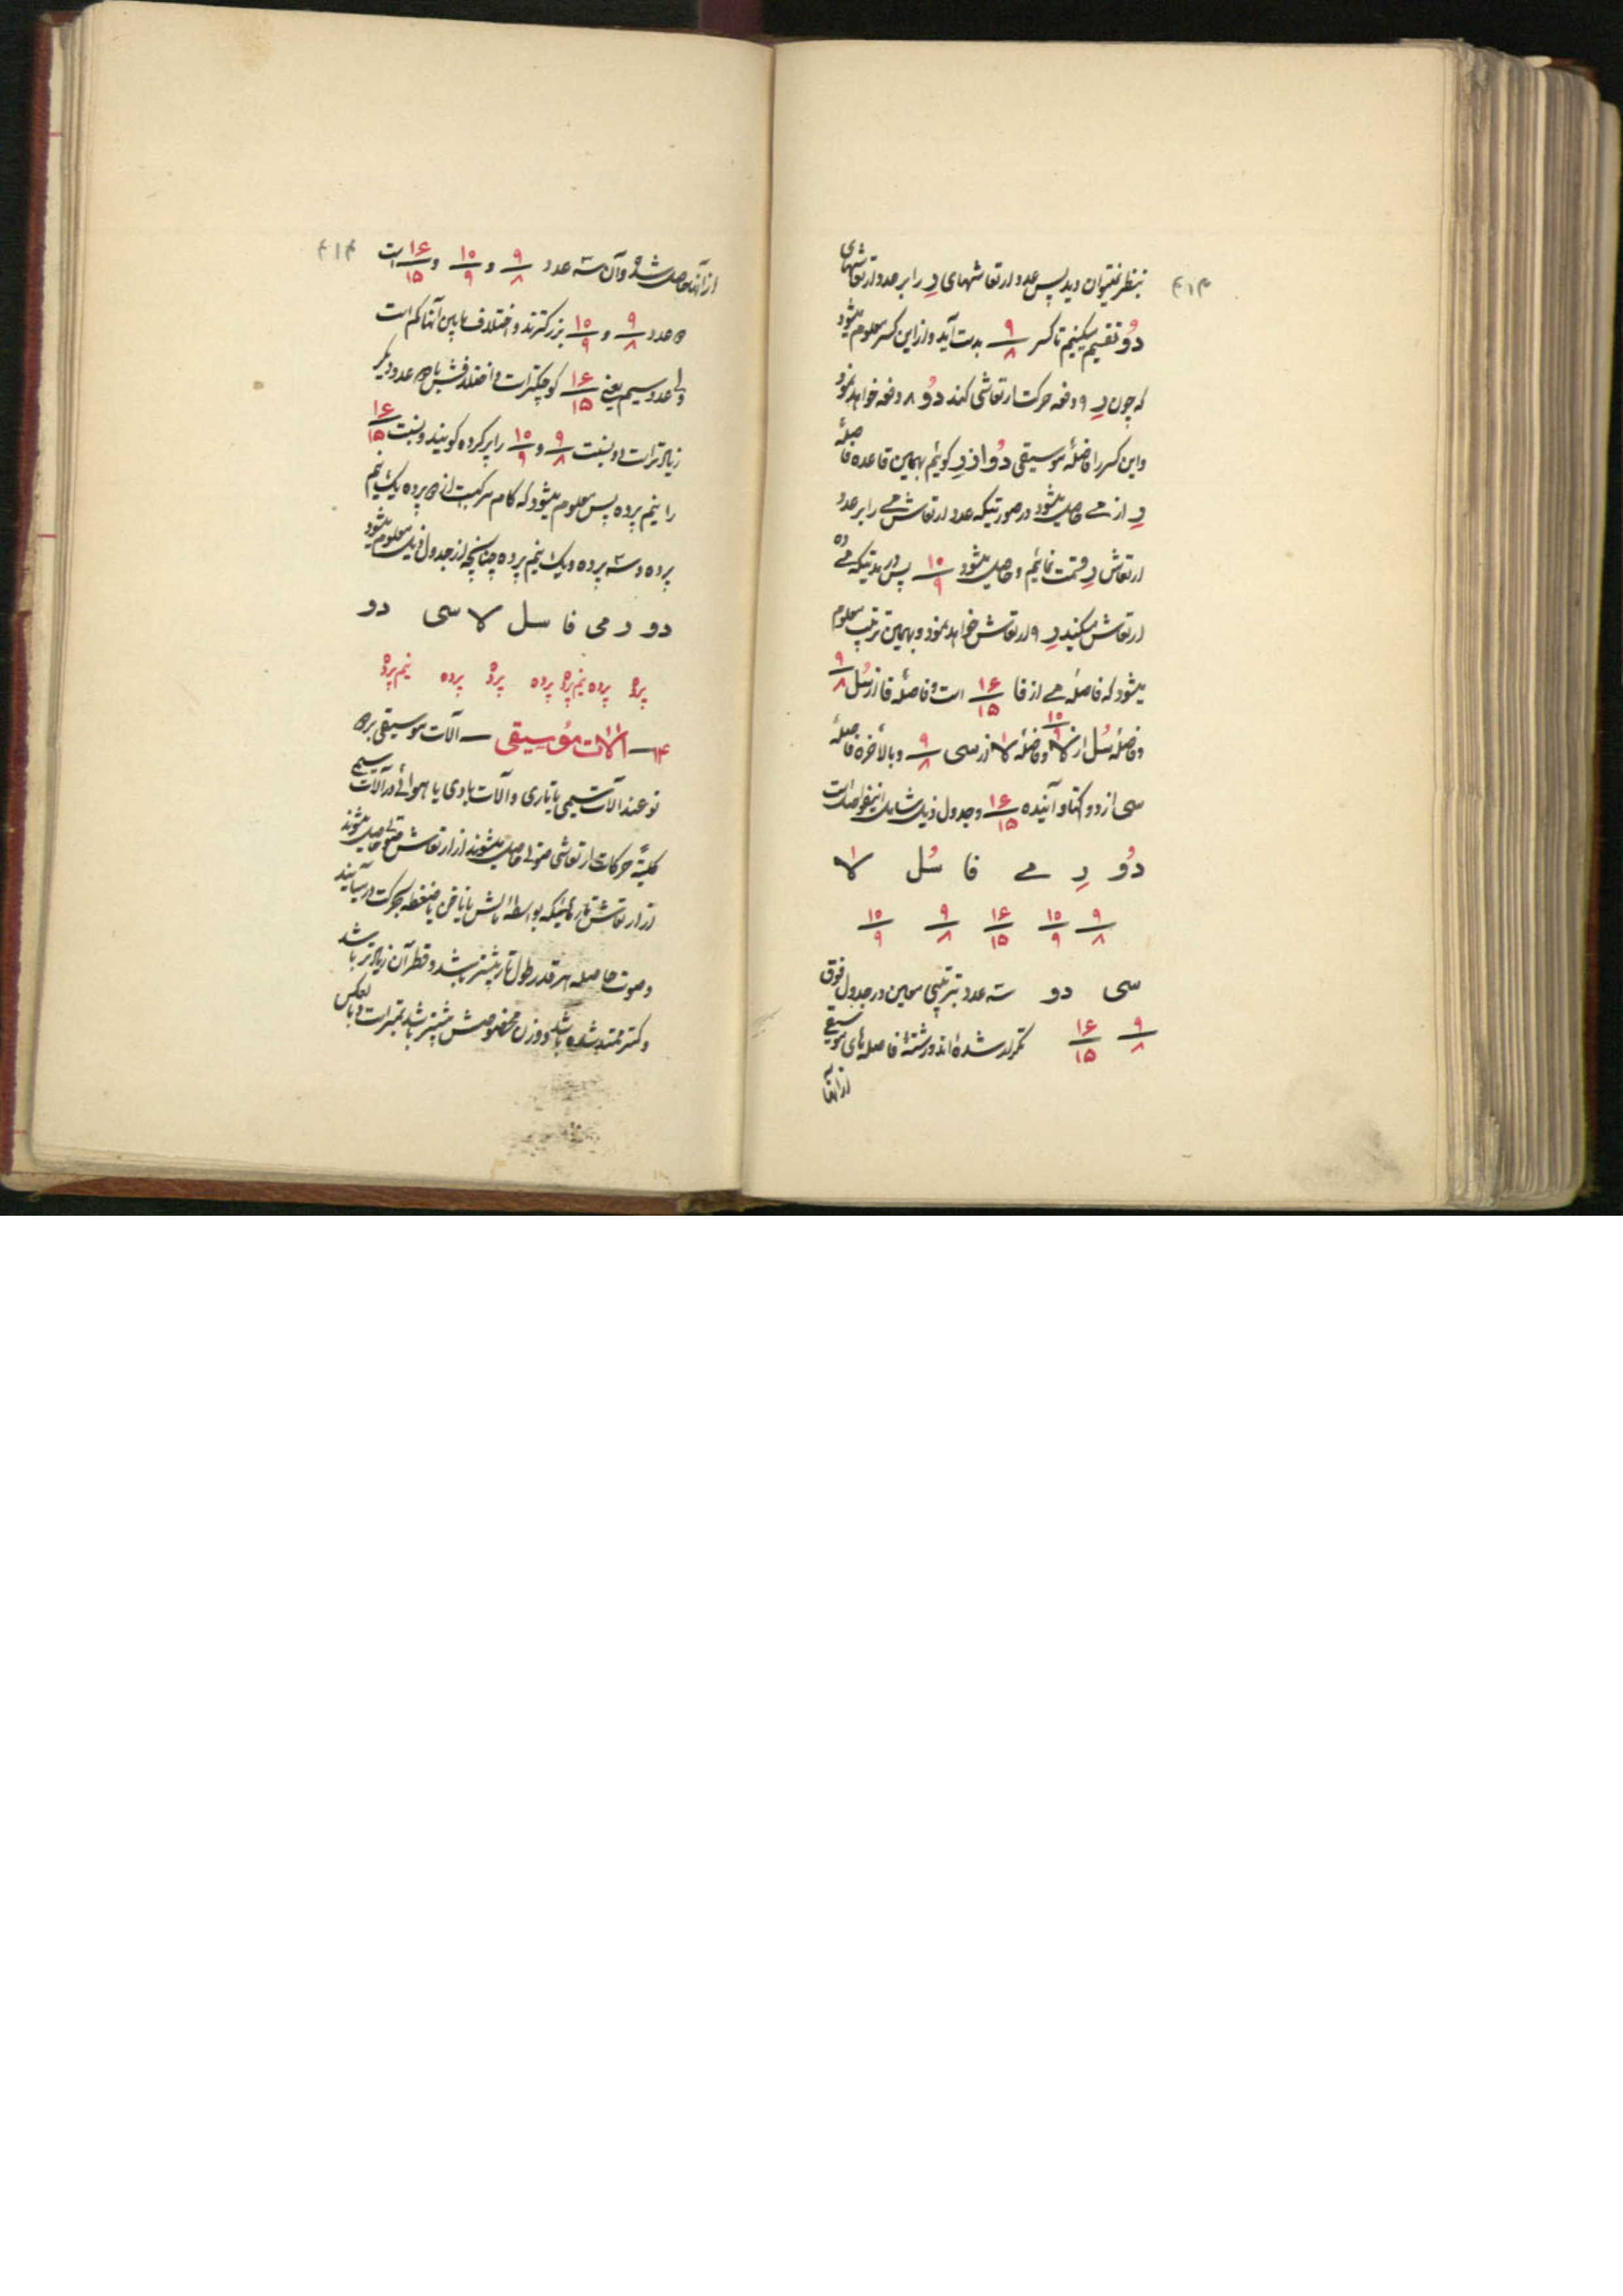 بنظر نمیتوان دید پس عدد ارتعاشهای رِ را بر عدد ارتعاشهای
دُو تقسیم میکنیم تا کسر ۹/۸ بدست آید و از این کسر معلوم میشود
که چون رِ ۹ دفعه حرکت ارتعاشی کند دُو ۸ دفعه خواهد نمود
و این کسر را فاصلهٔ موسیقی دُو از رِ گوئیم بهمین قاعده فاصلهٔ
رِ از مے حاصل میشود در صورتیکه عدد ارتعاش مے را بر عدد
ارتعاش رِ قسمت نمائیم و حاصل میشود ۱۰/۹ پس در مدتیکه مے ده
ارتعاش میکند رِ ۹ ارتعاش خواهد نمود و بهمین ترتیب معلوم
میشود که فاصلهٔ مے از فا ۱۶/۱۵ است و فاصلهٔ فا از سُل ۹/۸
و فاصلهٔ سُل از لا ۱۰/۹ و فاصلهٔ لا از سی ۹/۸ و بالأخره فاصلهٔ
سی از دو اکتاو آینده ۱۶/۱۵ و جدول ذیل شامل اینفواصل است
دُو رِ مے فا سُل لا
۹/۸ ۱۰/۹ ۱۶/۱۵ ۹/۸ ۱۰/۹
سی دو سه عدد بترتیبی معین در جدول فوق
۹/۸ ۱۶/۱۵ تکرار شده‌اند و رشتهٔ فاصله‌های موسیقی
از آنها
از آنها حاصل شده و آن سه عدد ۹/۸ و ۱۰/۹ و ۱۶/۱۵ است
دو عدد ۹/۸ و ۱۰/۹ بزرگترند و اختلاف مابین آنها کم است
ولی عدد سیم یعنی ۱۶/۱۵ کوچکتر است و اختلافش با دو عدد دیگر
زیادتر است دو نسبت ۹/۸ و ۱۰/۹ را پرده گویند و نسبت ۱۶/۱۵
را نیم پرده پس معلوم میشود که گام مرکبست از دو پرده یک نیم
پرده و سه پرده و یک نیم پرده چنانچه از جدول ذیل معلوم میشود
دو ر می فا سل لا سی دو
پرده پرده نیم پرده پرده پرده پرده نیم پرده
۱۴ — آلات موسیقی — آلات موسیقی بر دو
نوعند آلات سیمی یا تاری و آلات بادی یا هوائی در آلات سیمی
کلیّةً حرکات ارتعاشی صوتی حاصل میشوند از ارتعاش
از ارتعاش تارهائیکه بواسطهٔ مالش یا ناخن یا ضغطه بحرکت در میآیند
و صوت حاصله هر قدر طول تار بیشتر باشد و قطر آن زیادتر باشد
و کمتر ممتد شده باشد و وزن مخصوصش بیشتر باشد بمتر است و بالعکس